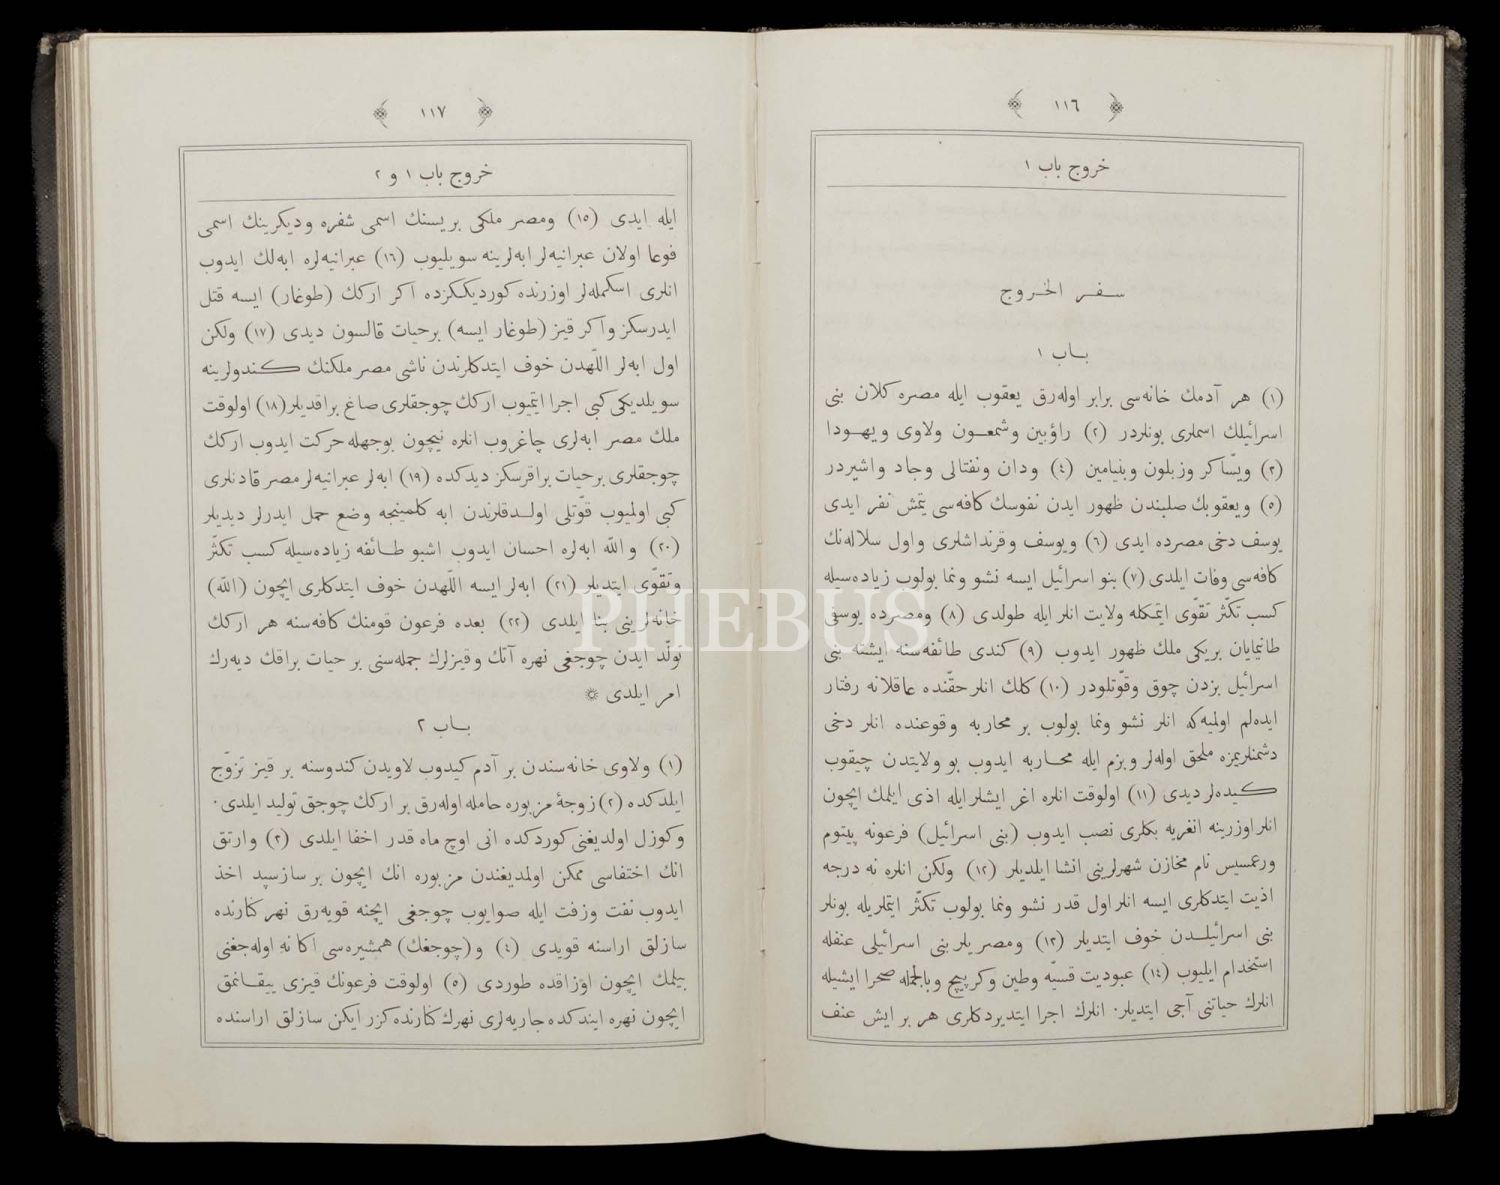 ١١٦
خروج باب ١
سفر الخروج
باب ١
(١) هر آدمك خانه‌سى برابر اوله‌رق يعقوب ايله مصره كلان بنى
اسرائيلك اسملرى بونلردر (٢) راؤبين وشمعون ولاوى ويهودا
(٣) ويسّاكر وزبلون وبنيامين (٤) ودان ونفتالى وجاد واشيردر
(٥) ويعقوبك صلبندن ظهور ايدن نفوسك كافه‌سى يتمش نفر ايدى
يوسف دخى مصرده ايدى (٦) ويوسف وقرنداشلرى واول سلاله‌نك
كافه‌سى وفات ايلدى (٧) بنو اسرائيل ايسه نشو ونما بولوب زياده‌سيله
كسب تكثّر تقوّى ايتمكله ولايت انلر ايله طولدى (٨) ومصرده يوسفى
طانيمايان بريكى ملك ظهور ايدوب (٩) كندى طائفه‌سنه ايشته بنى
اسرائيل بزدن چوق وقوّتلودر (١٠) كلك انلر حقّنده عاقلانه رفتار
ايده‌لم اولميه‌كه انلر نشو ونما بولوب بر محاربه وقوعنده انلر دخى
دشمنلريمزه ملحق اوله‌لر وبزم ايله محاربه ايدوب بو ولايتدن چيقوب
كيده‌لر ديدى (١١) اولوقت انلره اغر ايشلر ايله اذى ايلمك ايچون
انلر اوزرينه انغريه بكلرى نصب ايدوب (بنى اسرائيل) فرعونه پيتوم
ورعمسيس نام مخازن شهرلرينى انشا ايلديلر (١٢) ولكن انلره نه درجه
اذيت ايتدكلرى ايسه انلر اول قدر نشو ونما بولوب تكثّر ايتملريله بونلر
بنى اسرائيلدن خوف ايتديلر (١٣) ومصريلر بنى اسرائيلى عنفله
استخدام ايليوب (١٤) عبوديت قسيّه وطين وكرپيچ وبالجمله صحرا ايشيله
انلرك حياتنى آجى ايتديلر. انلرك اجرا ايتديردكلرى هر بر ايش عنف
١١٧
خروج باب ١ و ٢
ايله ايدى (١٥) ومصر ملكى بريسنك اسمى شفره وديكرينك اسمى
فوعا اولان عبرانيه‌لر ابه‌لرينه سويليوب (١٦) عبرانيه‌لره ابه‌لك ايدوب
انلرى اسكمله‌لر اوزرنده كورديككزده اكر اركك (طوغار) ايسه قتل
ايدرسكز واكر قيز (طوغار ايسه) برحيات قالسون ديدى (١٧) ولكن
اول ابه‌لر اللّهدن خوف ايتدكلرندن ناشى مصر ملكنك كندولرينه
سويلديكى كبى اجرا ايتميوب اركك چوجقلرى صاغ براقديلر (١٨) اولوقت
ملك مصر ابه‌لرى چاغروب انلره نيچون بوجهله حركت ايدوب اركك
چوجقلرى برحيات براقرسكز ديدكده (١٩) ابه‌لر عبرانيه‌لر مصر قادنلرى
كبى اولميوب قوّتلى اولدقلرندن ابه كلمينجه وضع حمل ايدرلر ديديلر
(٢٠) والله ابه‌لره احسان ايدوب اشبو طائفه زياده‌سيله كسب تكثّر
وتقوّى ايتديلر (٢١) ابه‌لر ايسه اللّهدن خوف ايتدكلرى ايچون (الله)
خانه‌لرينى بنا ايلدى (٢٢) بعده فرعون قومنك كافه‌سنه هر اركك
تولّد ايدن چوجغى نهره آتك وقيزلرك جمله‌سنى برحيات براقك ديه‌رك
امر ايلدى ۞
باب ٢
(١) ولاوى خانه‌سندن بر آدم كيدوب لاويدن كندوسنه بر قيز تزوّج
ايلدكده (٢) زوجهٔ مزبوره حامله اوله‌رق بر اركك چوجق توليد ايلدى.
وكوزل اولديغنى كوردكده انى اوچ ماه قدر اخفا ايلدى (٣) وارتق
انك اختفاسى ممكن اولمديغندن مزبوره انك ايچون بر سازسپد اخذ
ايدوب نفت وزفت ايله صوايوب چوجغى ايچنه قويه‌رق نهر كنارنده
سازلق اراسنه قويدى (٤) و(چوجغك) همشيره‌سى اكا نه اوله‌جغنى
بيلمك ايچون اوزاقده طوردى (٥) اولوقت فرعونك قيزى ييقانمق
ايچون نهره ايندكده جاريه‌لرى نهرك كنارنده كزر ايكن سازلق اراسنده
PHEBUS